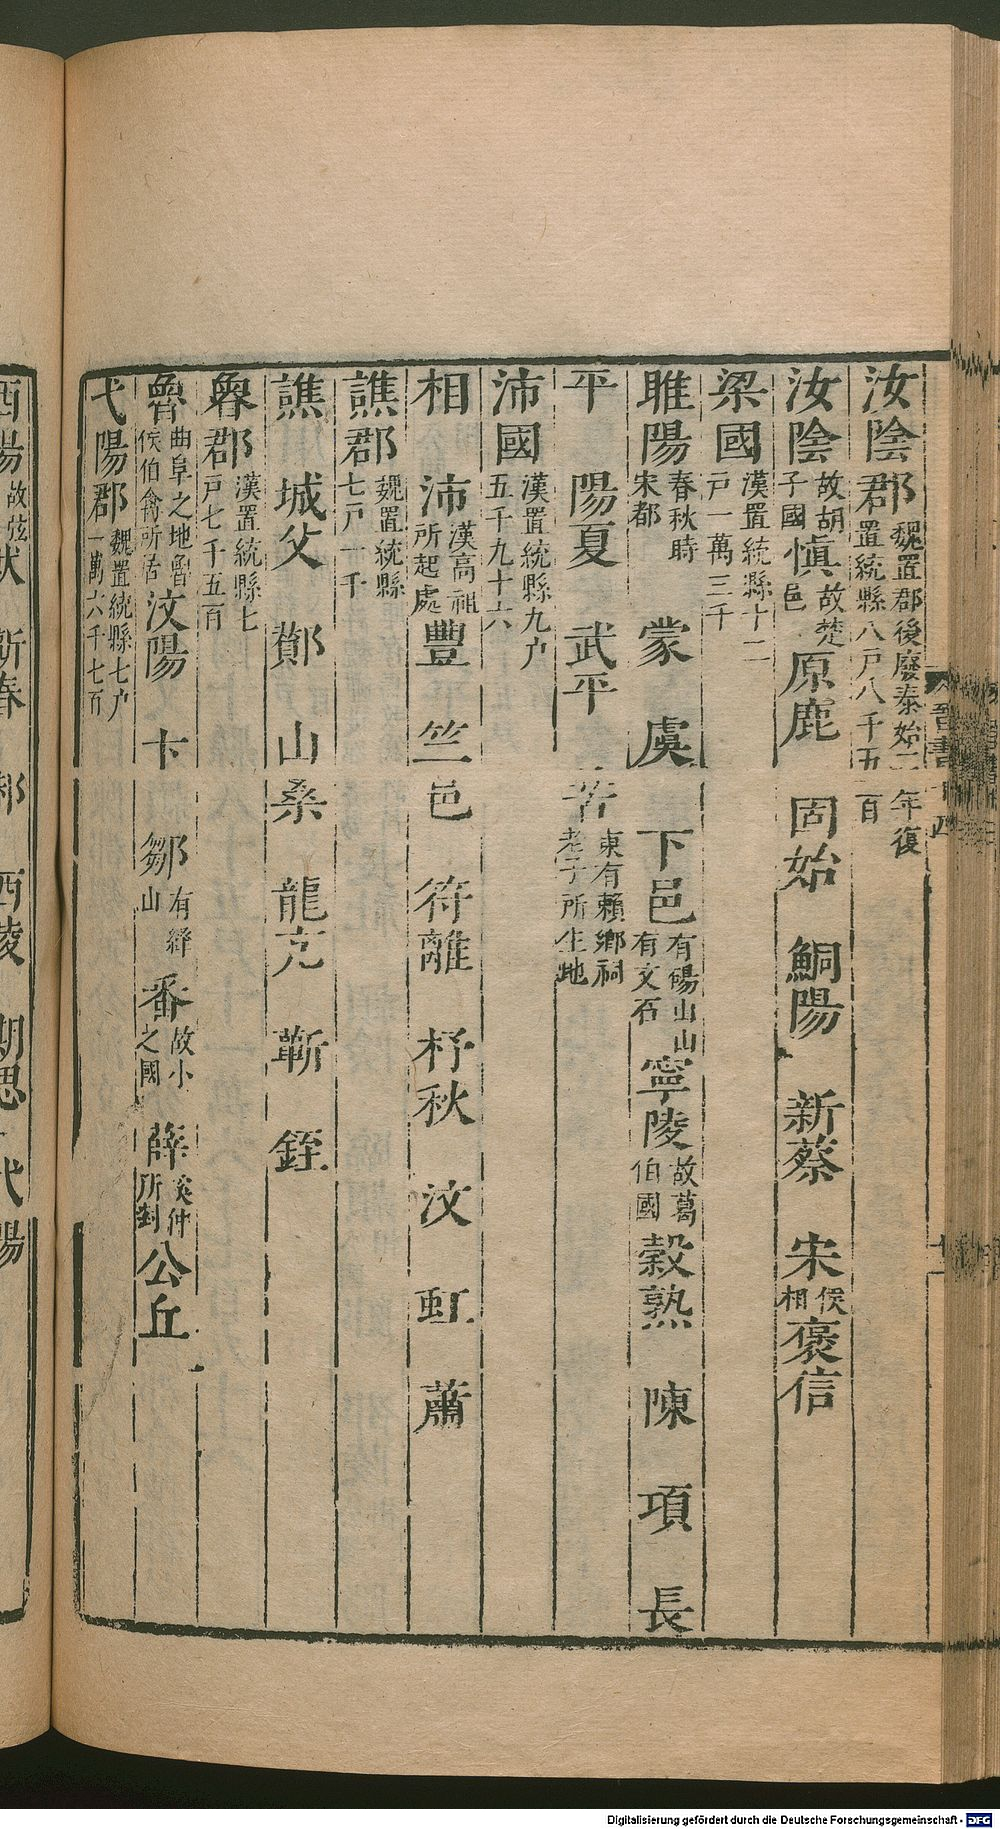 汝陰郡魏置郡後廢泰始二年復置統縣八戸八千五百
汝陰故胡子國愼故楚邑原鹿 固始 鮦陽 新蔡 宋侯相褒信
梁國漢置統縣十二戸一萬三千
睢陽春秋時宋都 蒙 虞 下邑有碭山山有文石寧陵故葛伯國榖熟 陳 項 長
平 陽夏 武平 苦東有賴鄉祠老子所生地
沛國漢置統縣九户五千九十六
相 沛漢高祖所起處豐 竺邑 符離 杼秋 汶 虹 蕭
譙郡魏置統縣七戸一千
譙 城父 酇 山桑 龍亢 蘄 銍
魯郡漢置統縣七戸七千五百
魯曲阜之地魯侯伯禽所居汶陽 卞 鄒有繹山 番故小之國 薛奚仲所封公丘
弋陽郡魏置統縣七户一萬六千七百
西陽故弦 蘄春 邾 西陵 期思 弋陽
晉書十四
Digitalisierung gefördert durch die Deutsche Forschungsgemeinschaft - DFG